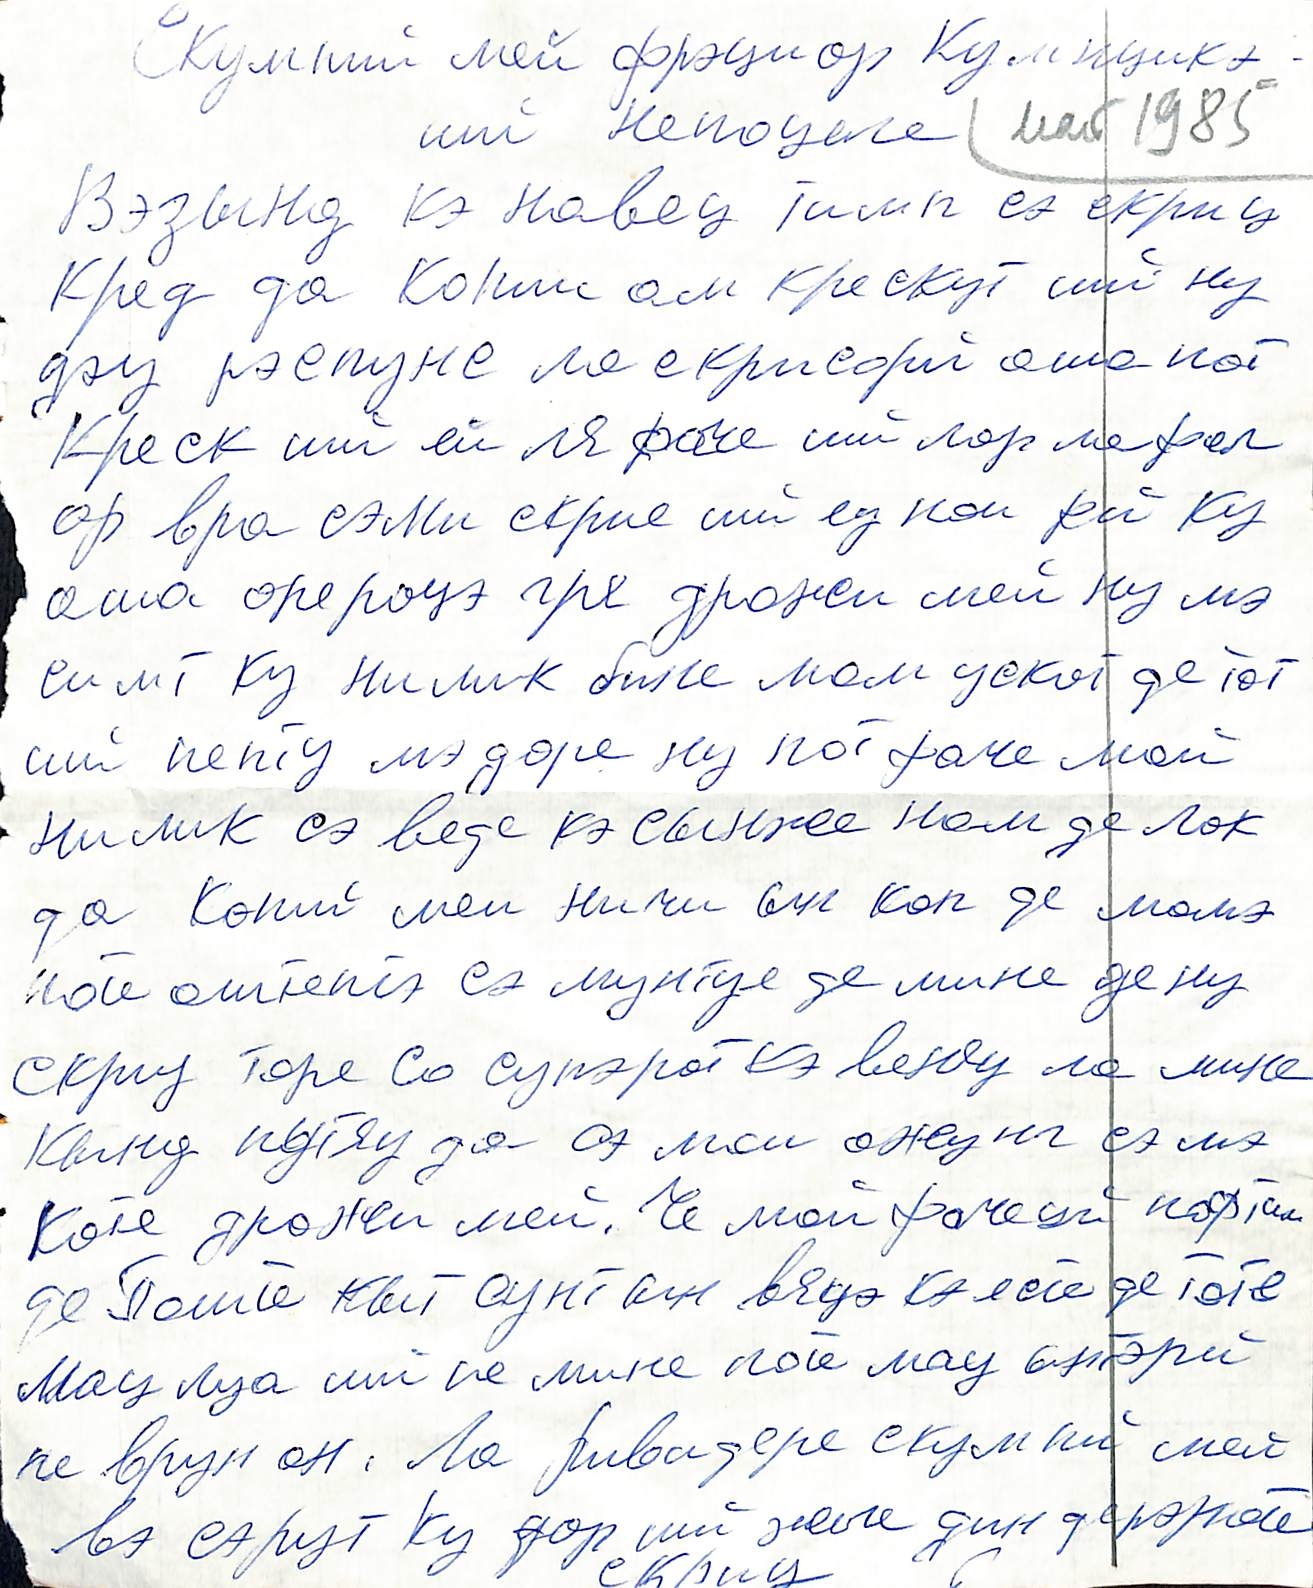 Скумпий мей фрэциор Кумнцикэ-
ший Непоцеле
май 1985
Вэзынд кэ навец тимп сэ скриц
Кред да Копии ам крескут ший ну
дэу рэспунс ла скрисорй аша пот
Креск ший ей ля фаче ший лор ла фел
ор вра сэми скрие ший еу кои фй ку
аша орероцэ гря дражи мей ну мэ
симт ку нимик бине мам ускат де тот
ший пепту мэ доре ну пот фаче май
нимик сэ веде кэ сынже нам де лок
да Копий меи ничи ын кап де мамэ
поте аштептэ сэ мунтуе де мине де ну
скриу таре Со супэрат кэ венйу ла мине
Кынд путяу да сэ маи ажунг сэ мэ
Коте дражи мей. Че май фачецй
де Поште кыт сунт ын вяцэ кэ есте де тоте
Мац луа ший пе мине поте мац ынтэрй
пе врун ан. Ла ривадере скумпий мей
вэ сэрут ку дор ший желе дин депэртате
скриц